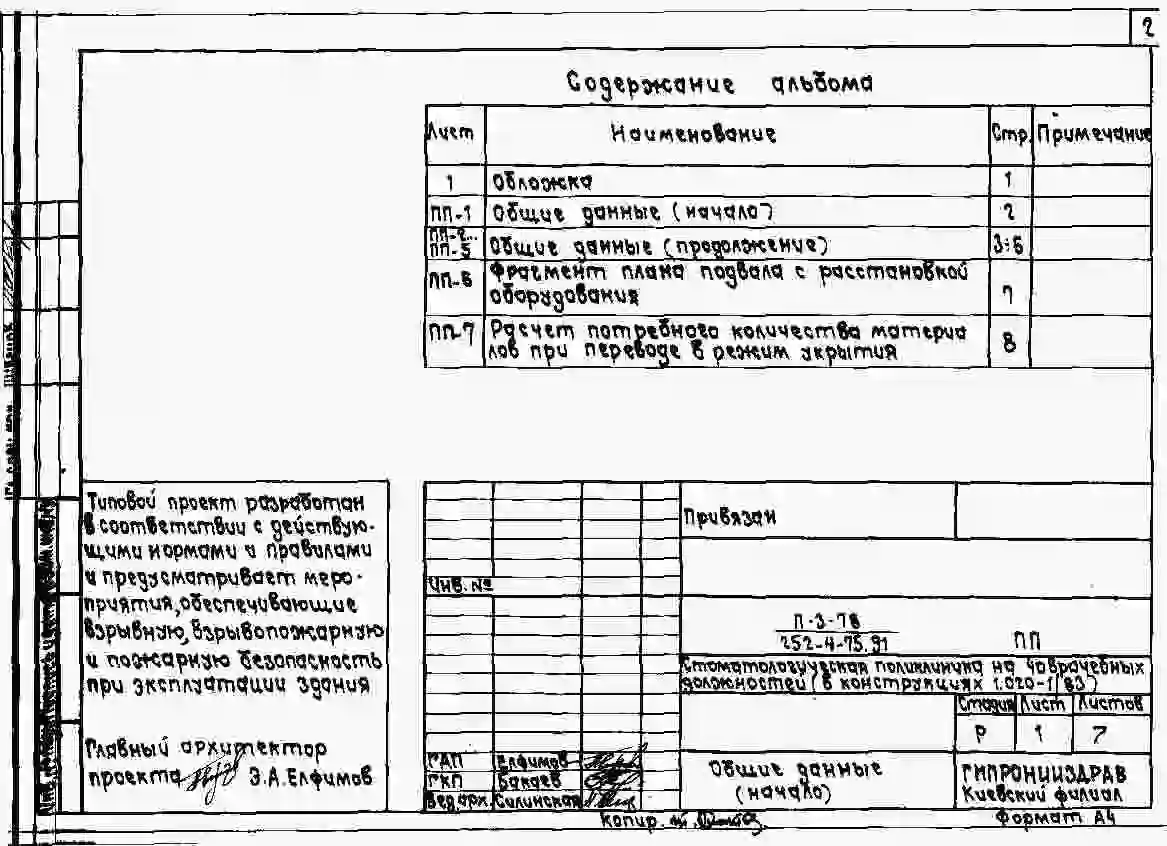 2
Содержание альбома
Лист Наименование Стр. Примечание
1 Обложка 1
ПП-1 Общие данные (начало) 2
ПП-2...
ПП-5 Общие данные (продолжение) 3÷6
ПП-6 Фрагмент плана подвала с расстановкой
оборудования 7
ПП-7 Расчет потребного количества материа
лов при переводе в режим укрытия 8
Типовой проект разработан
в соответствии с действую-
щими нормами и правилами
и предусматривает меро-
приятия, обеспечивающие
взрывную, взрывопожарную
и пожарную безопасность
при эксплуатации здания
Главный архитектор
проекта Э.А.Елфимов
Привязан
Инв. №
П-3-78
252-4-75.91 ПП
Стоматологическая поликлиника на врачебных
должностей (в конструкциях 1.020-1/83)
Стадия Лист Листов
Р 1 7
ГАП Елфимов
ГКП Бакаев
Вед.арх. Силинская
Общие данные
(начало)
ГИПРОНИИЗДРАВ
Киевский филиал
Копир.
Формат А4